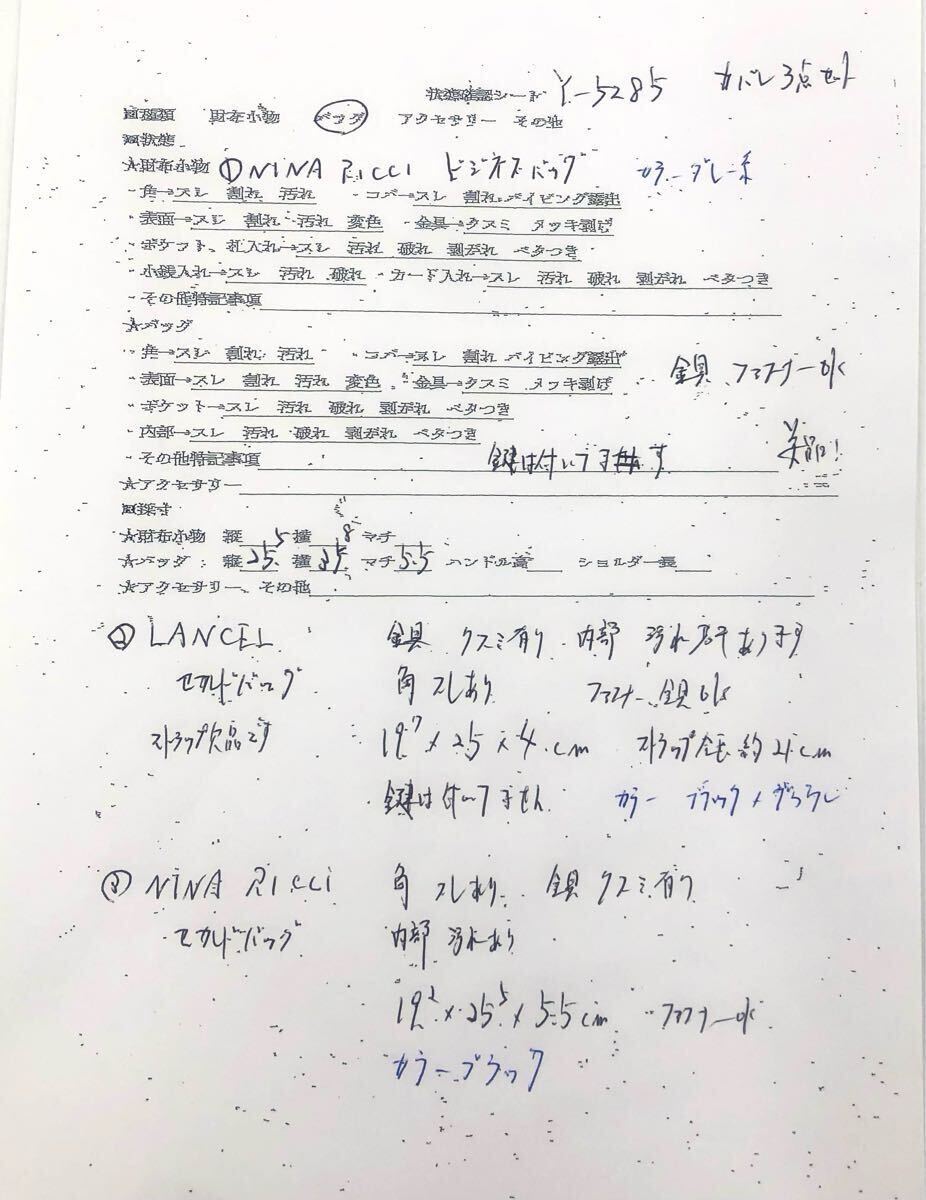 状態確認シート Y-5285 カバン3点セット
回種類 財布小物 バッグ アクセサリー その他
回状態
★財布小物 ①NINA RICCI ビジネスバッグ カラーグレー系
・角→スレ 割れ 汚れ ・コバ→スレ 割れ パイピング露出
・表面→スレ 割れ 汚れ 変色 ・金具→クスミ メッキ剥げ
・ポケット、札入れ→スレ 汚れ 破れ 剥がれ ベタつき
・小銭入れ→スレ 汚れ 破れ ・カード入れ→スレ 汚れ 破れ 剥がれ ベタつき
・その他特記事項
★バッグ
・角→スレ 割れ 汚れ ・コバ→スレ 割れ パイピング露出
・表面→スレ 割れ 汚れ 変色 ・金具→クスミ メッキ剥げ 金具、ファスナーok
・ポケット→スレ 汚れ 破れ 剥がれ ベタつき
・内部→スレ 汚れ 破れ 剥がれ ベタつき
・その他特記事項 鍵は付いてます 美品!
★アクセサリー
回採寸
★財布小物 縦 横 マチ
★バッグ: 縦25.5 横35.8 マチ5.5 ハンドル高 ショルダー長
★アクセサリー、その他
② LANCEL 金具 クスミ有り 内部 汚れ若干あります
セカンドバッグ 角 スレあり ファスナー 金具ok
ストラップ欠品です 19.7×25×4.cm ストラップ全長約21cm
鍵は付いてません カラー ブラック×ブラウン
③ NINA RICCI 角 スレあり 金具 クスミ有り
セカンドバッグ 内部 汚れあり
19.2×25.5×5.5cm ファスナーok
カラーブラック